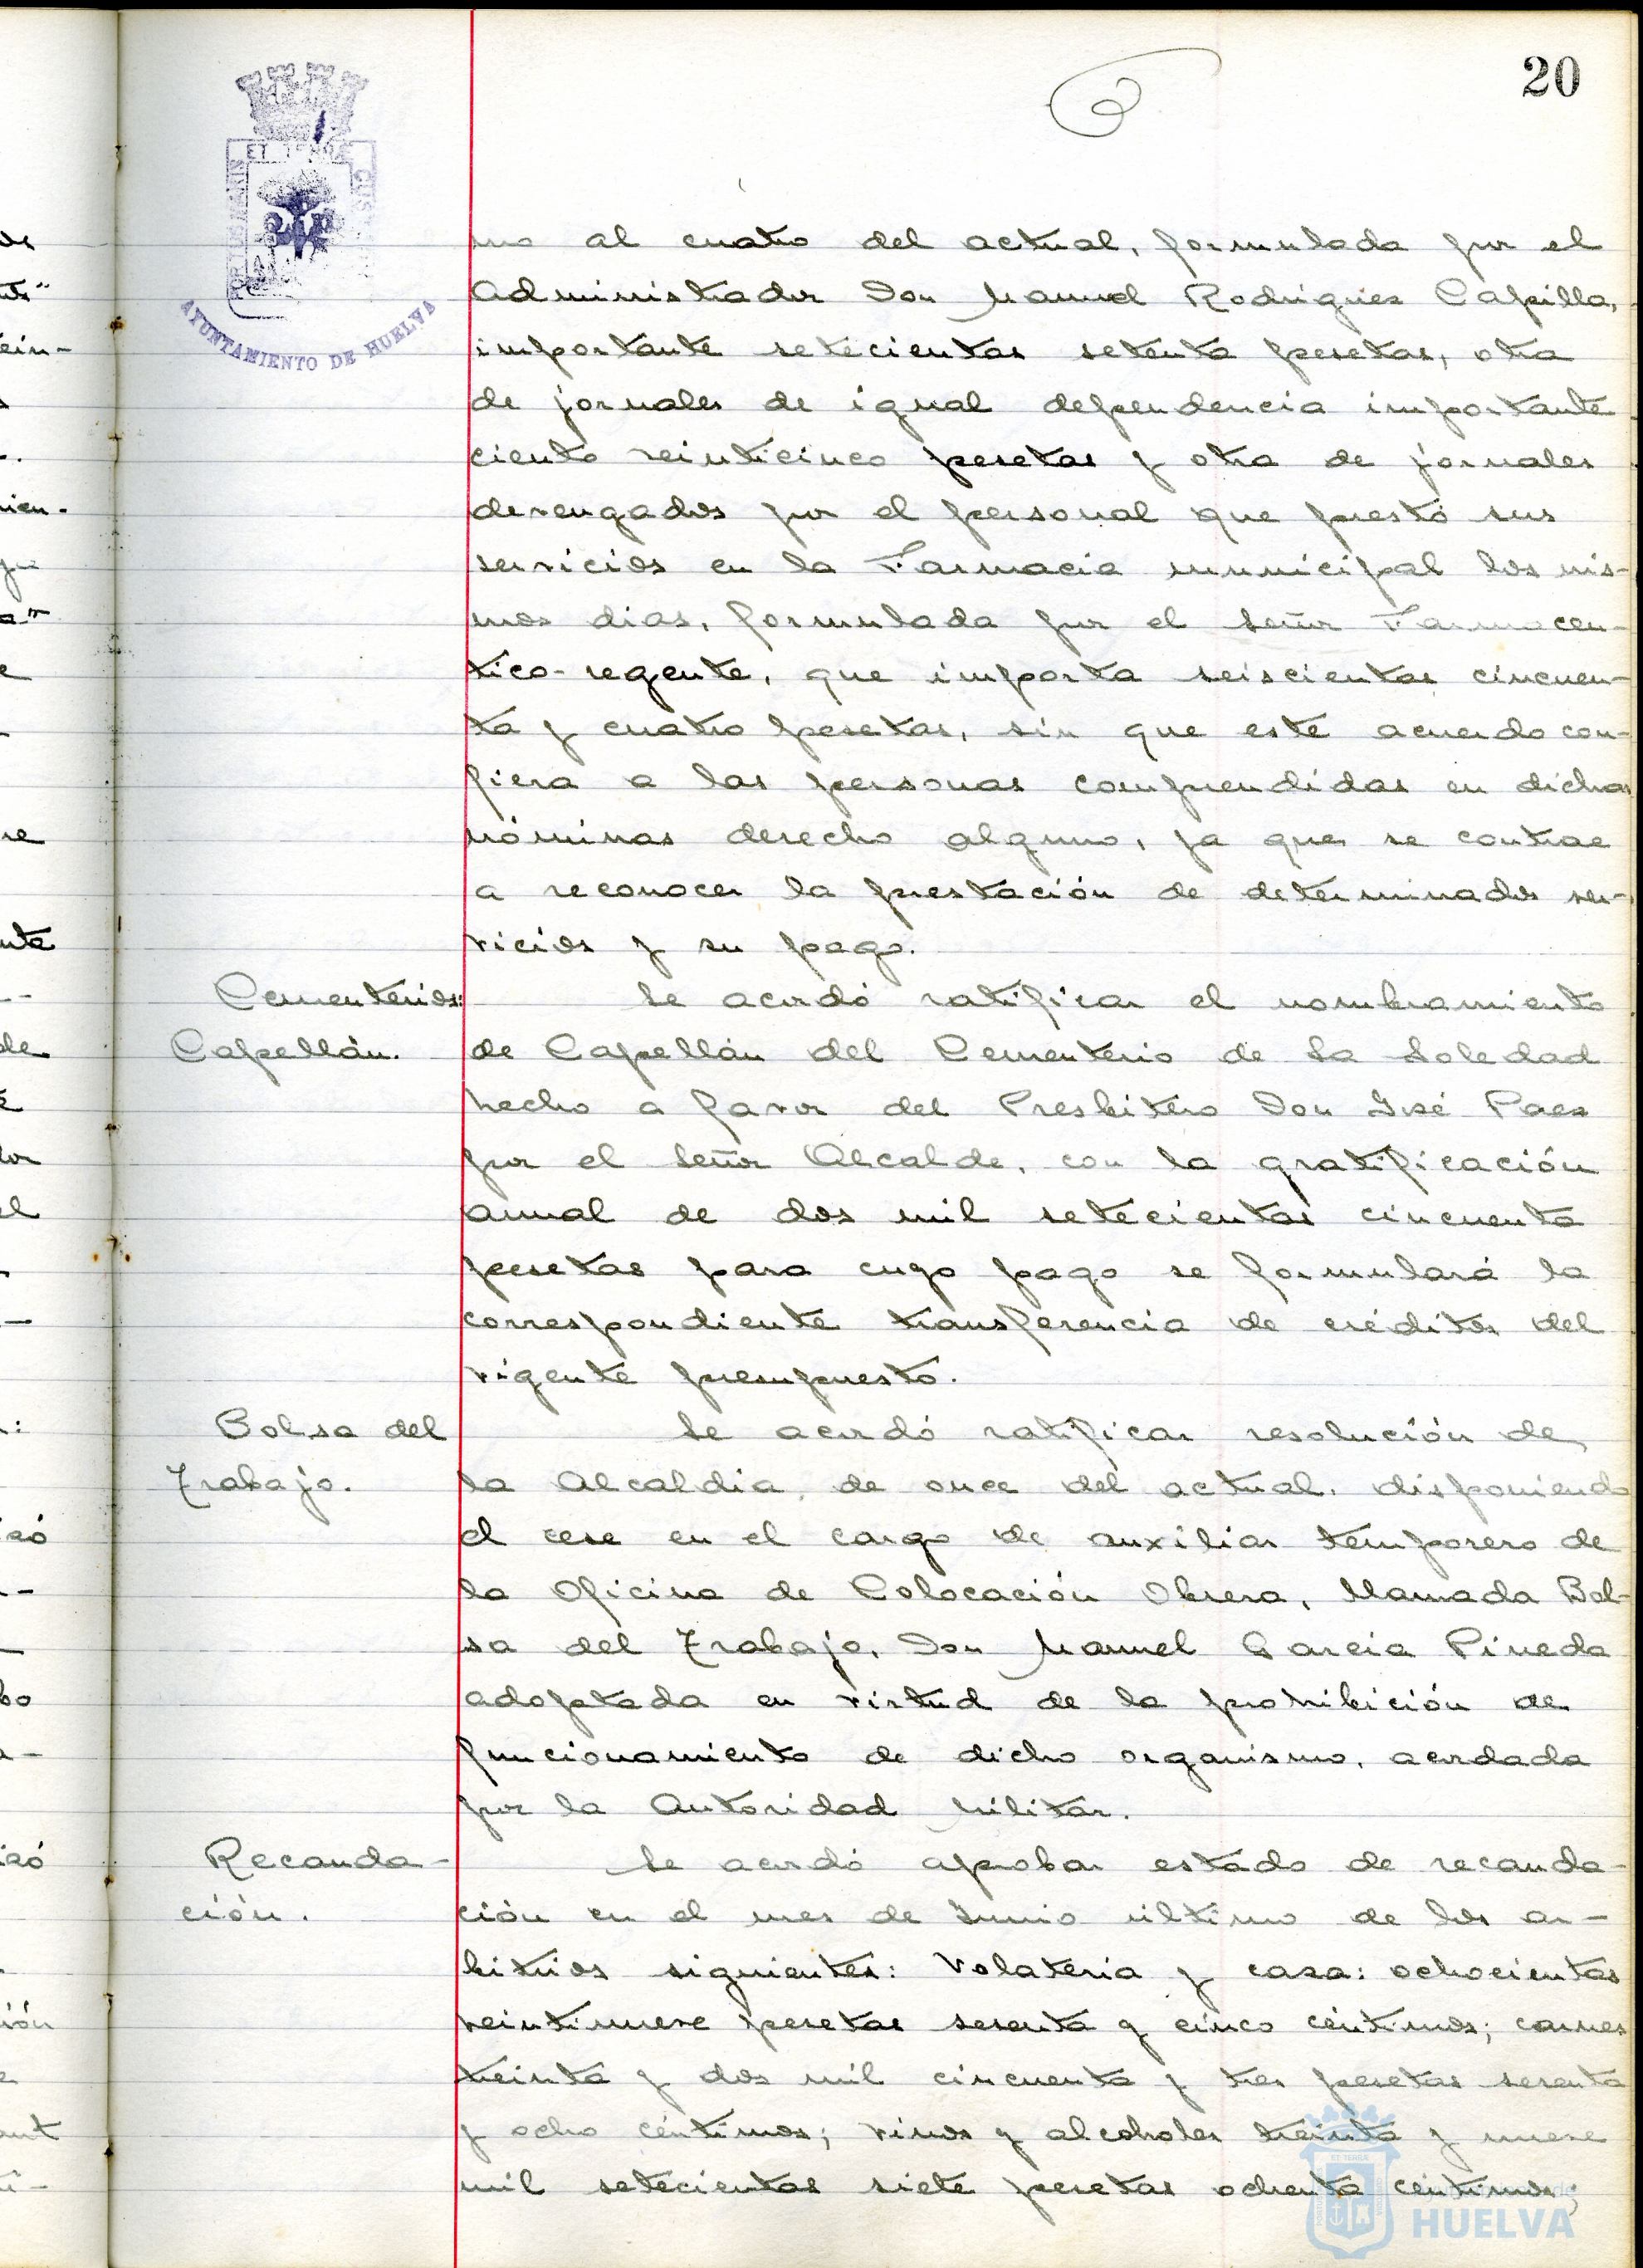 20
PORTUS MARIS ET TERRAE CUSTODIA
AYUNTAMIENTO DE HUELVA
mo al cuatro del actual, formulada por el
Administrador Don Manuel Rodriguez Capilla,
importante setecientas setenta pesetas, otra
de jornales de igual dependencia importante
ciento veinticinco pesetas y otra de jornales
devengados por el personal que prestó sus
servicios en la Farmacia municipal los mis-
mos dias, formulada por el señor Farmaceu-
tico-regente, que importa seiscientas cincuen-
ta y cuatro pesetas, sin que este acuerdo con-
fiera a las personas comprendidas en dichas
nóminas derecho alguno, ya que se contrae
a reconocer la prestación de determinados ser-
vicios y su pago.
Cementerios:
Capellán.
Se acordó ratificar el nombramiento
de Capellán del Cementerio de La Soledad
hecho a favor del Presbitero Don José Paez
por el Señor Alcalde, con la gratificación
anual de dos mil setecientas cincuenta
pesetas para cuyo pago se formulará la
correspondiente transferencia de créditos del
vigente presupuesto.
Bolsa del
Trabajo.
Se acordó ratificar resolución de
la Alcaldia, de once del actual, disponiendo
el cese en el cargo de auxiliar temporero de
la Oficina de Colocación Obrera, llamada Bol-
sa del Trabajo, Don Manuel Garcia Pineda
adoptada en virtud de la prohibición de
funcionamiento de dicho organismo, acordada
por la Autoridad Militar.
Recauda-
ción.
Se acordó aprobar estado de recauda-
ción en el mes de Junio último de los ar-
bitrios siguientes: Volateria y caza: ochocientas
veintinueve pesetas sesenta y cinco céntimos; carnes
treinta y dos mil cincuenta y tres pesetas sesenta
y ocho céntimos; vinos y alcoholes treinta y nueve
mil setecientas siete pesetas ochenta céntimos;
HUELVA